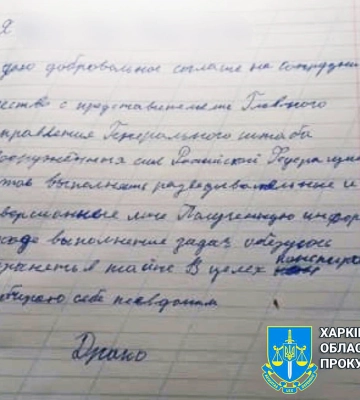 Я
даю добровольное согласие на сотрудни
чество с представителями Главного
управления Генерального штаба
вооружённых сил Российской Федерации
готов выполнять разведывательные и
диверсионные мне Полученную инфор
ходе выполнение задач обязуюсь
хранеть в тайне В целях конспира
выбираю себе псевдоним
Драко
ХАРКІ
ОБЛАС
ПРОКУ